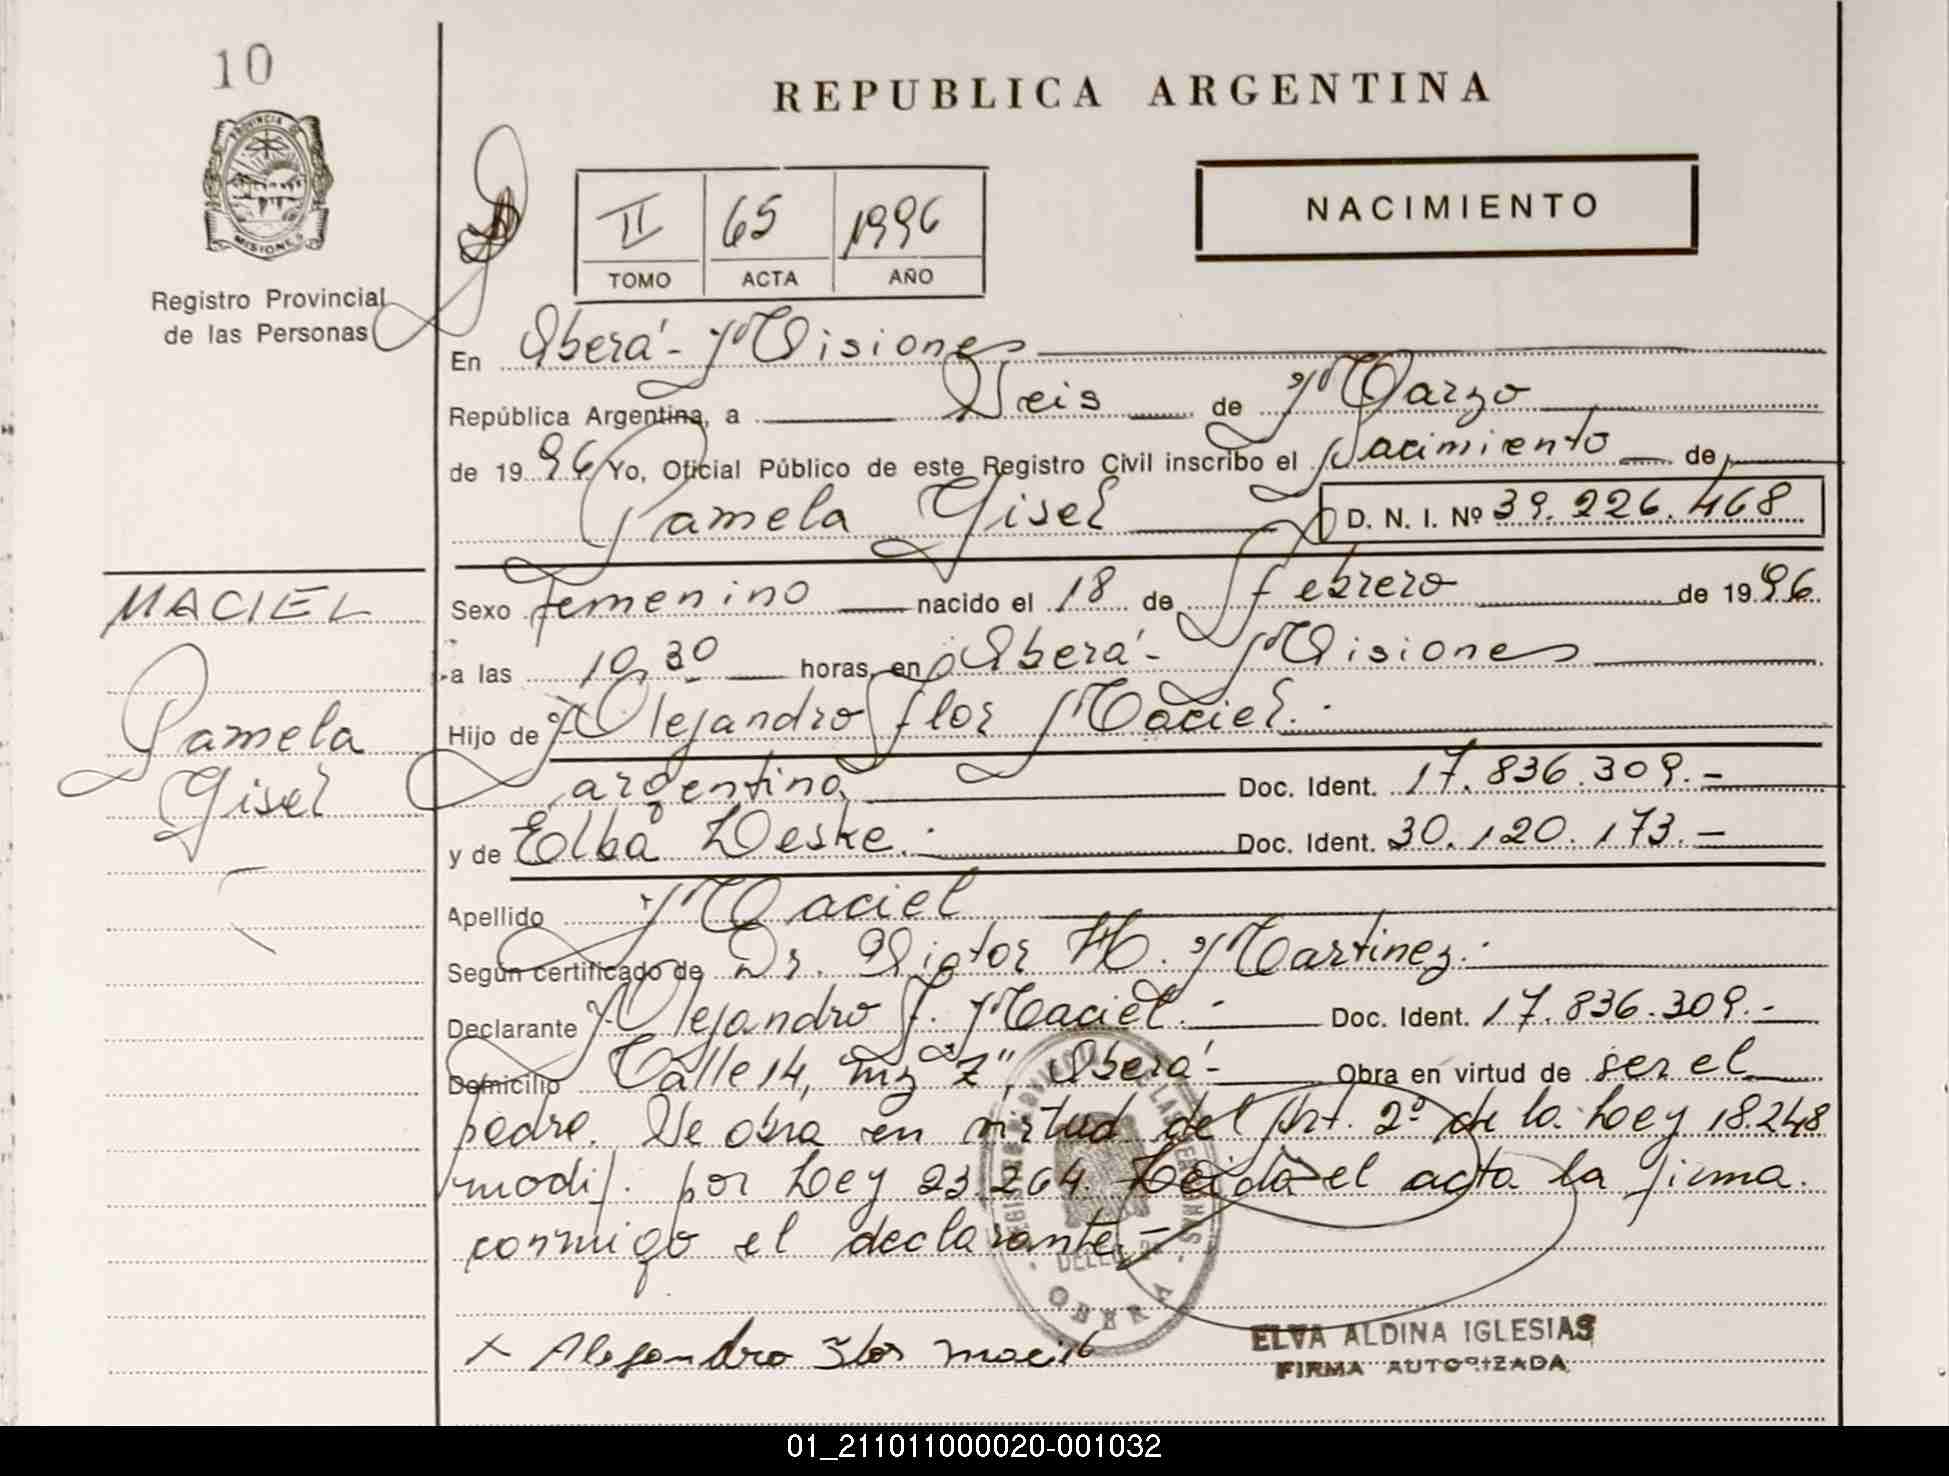 10
REPUBLICA ARGENTINA
PROVINCIA DE
MISIONES
NACIMIENTO
II 65 1996
TOMO ACTA AÑO
Registro Provincial
de las Personas
En Oberá - Misiones
República Argentina, a Seis de Marzo
de 1996 Yo, Oficial Público de este Registro Civil inscribo el Nacimiento de
Pamela Gisel D. N. I. Nº 39.226.468
MACIEL
Pamela
Gisel
Sexo femenino nacido el 18 de febrero de 1996
a las 10,30 horas, en Oberá - Misiones
Hijo de Alejandro flor Maciel.-
argentino, Doc. Ident. 17.836.309.-
y de Elba Weske.- Doc. Ident. 30.120.173.-
Apellido Maciel
Según certificado de Dr. Victor H. Martinez.-
Declarante Alejandro F. Maciel.- Doc. Ident. 17.836.309.-
Domicilio Calle 14, mz "Z", Oberá - Obra en virtud de ser el
padre. Se obra en virtud del Art. 2º de la Ley 18.248
modif. por Ley 23.264. Leida el acta la firma
conmigo el declarante.-
OBERA
x Alejandro Flor Maciel
ELVA ALDINA IGLESIAS
FIRMA AUTORIZADA
01_211011000020-001032